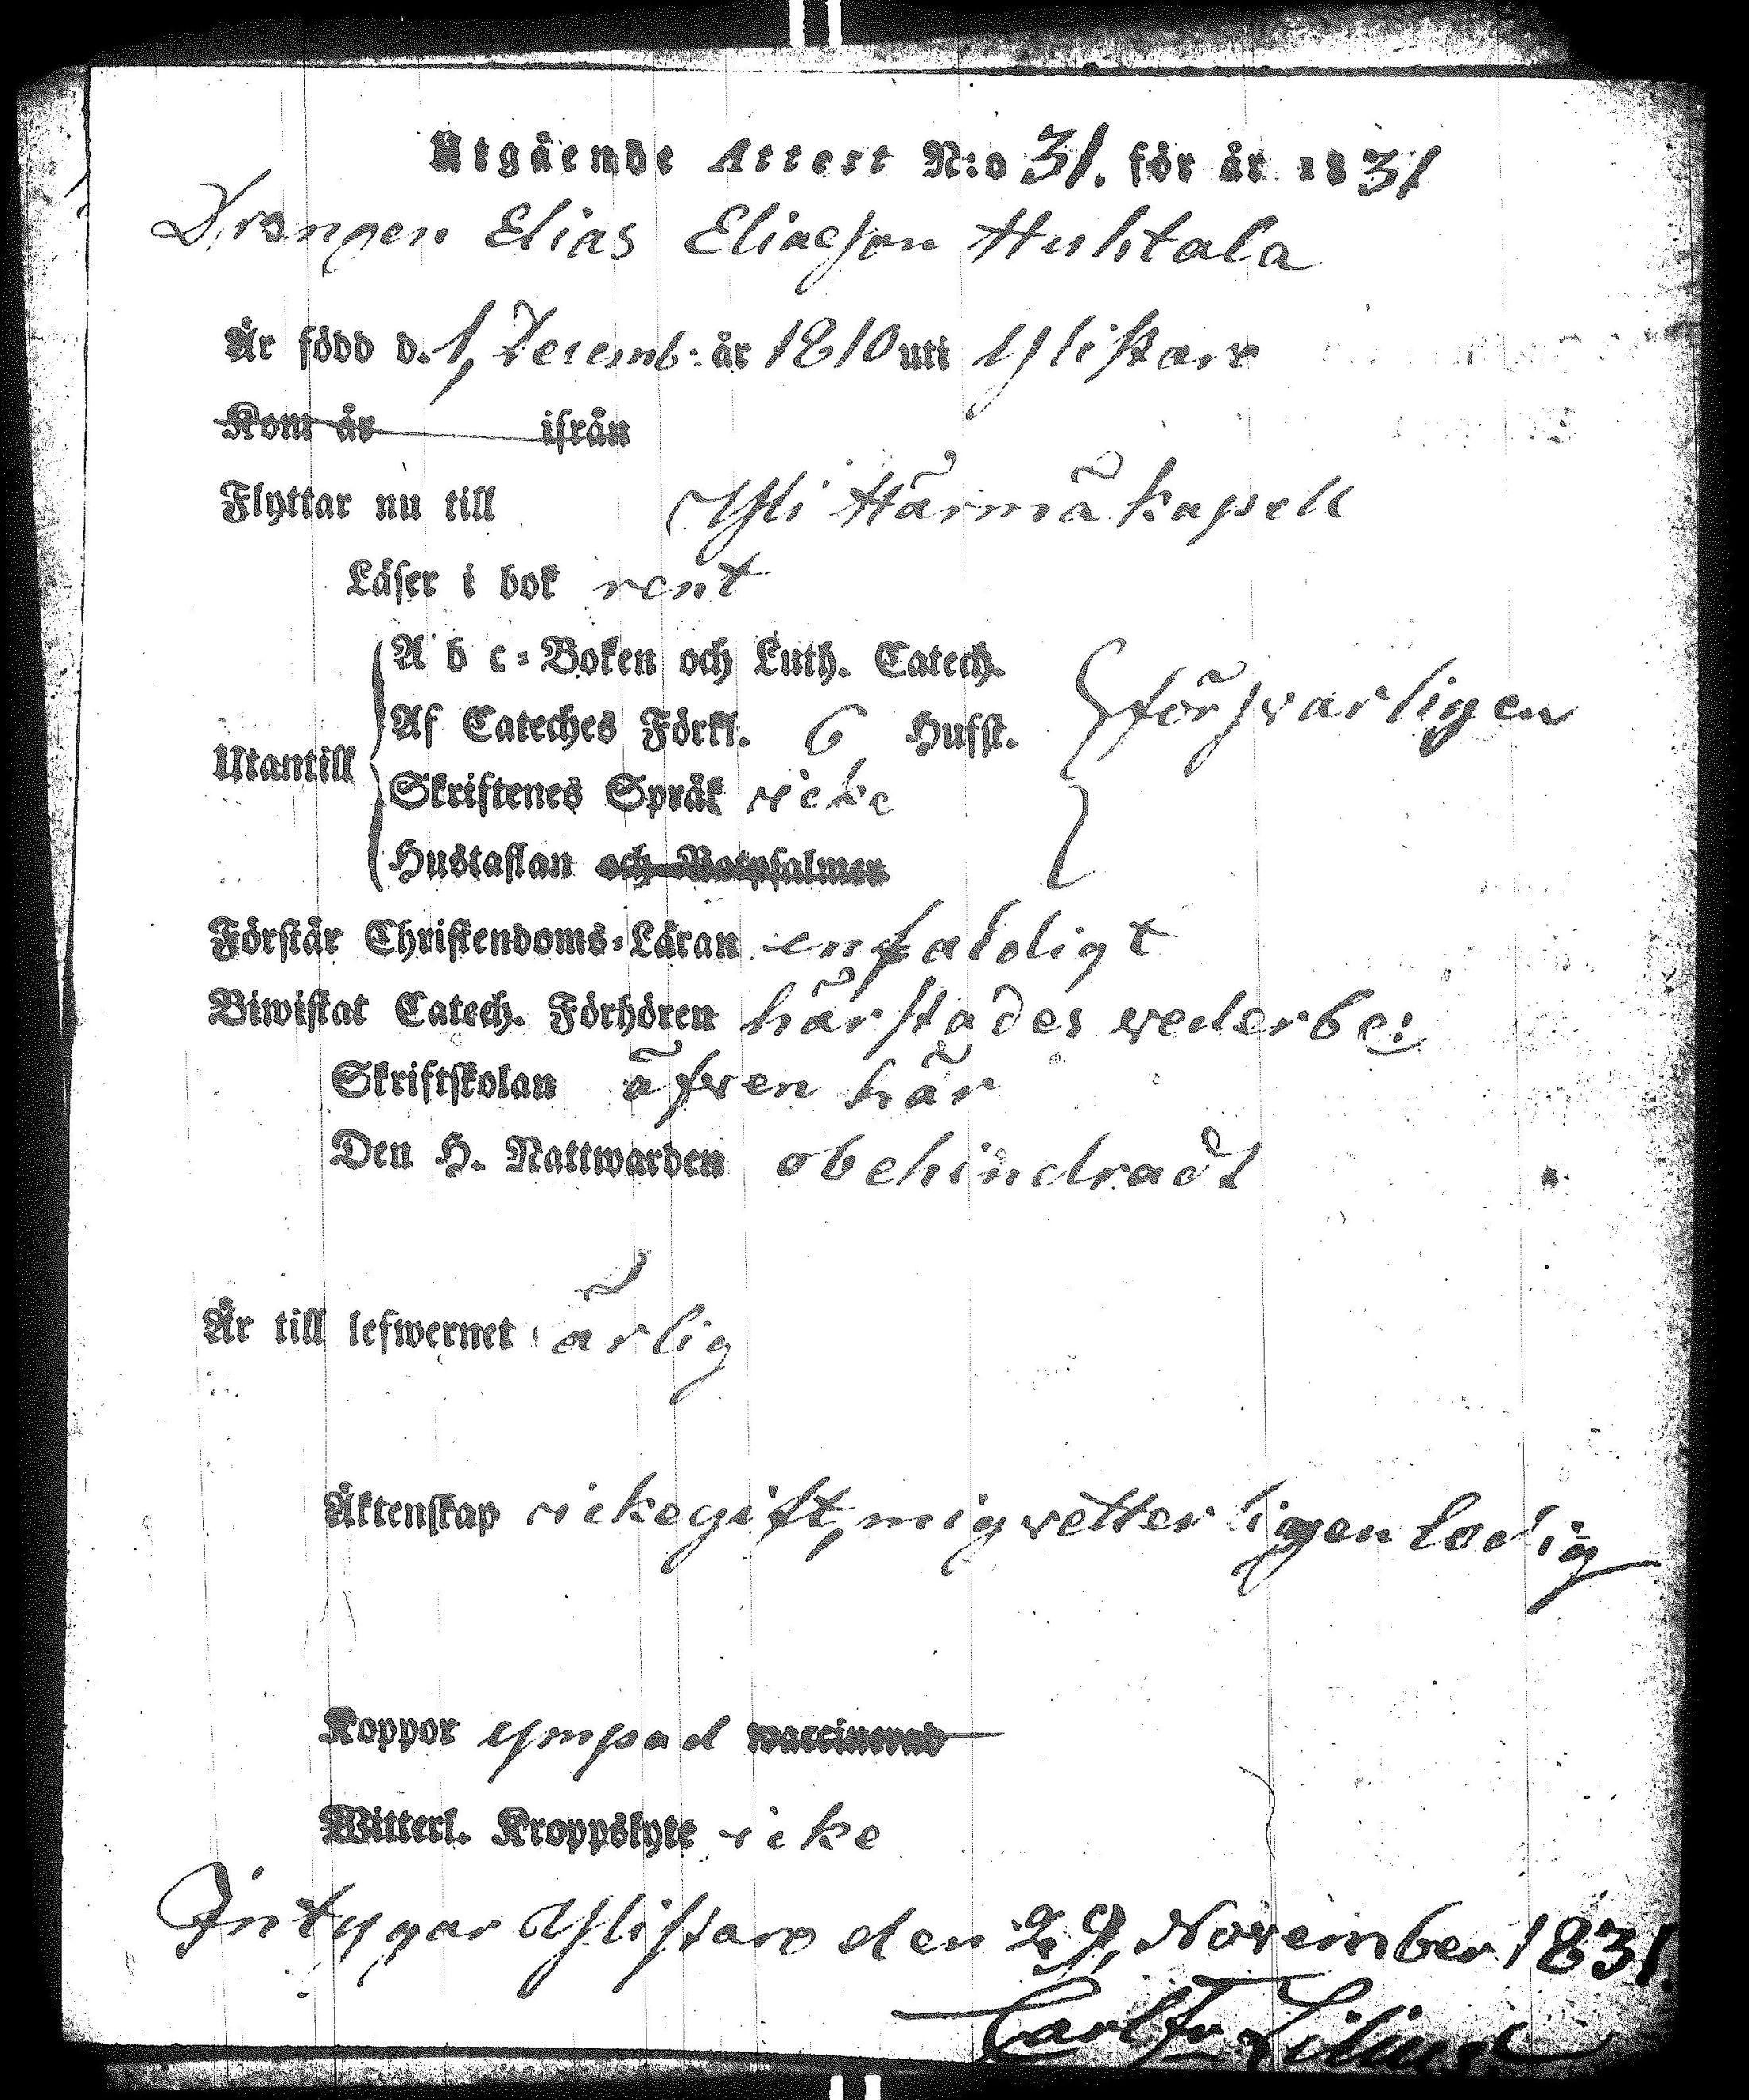 Utgående Attest N:o 31. för år 1831
Drengen Elias Eliasson Huhtala
Är född d. 1, Decemb: år 1810 uti Ylistaro
Kom år ifrån
Flyttar nu till Yli Härmä kapell
Läser i bok rent
A b c-Boken och Luth. Catech.
Af Cateches Förkl. 6 Hufst. försvarligen
Utantill
Skriftenes Språk icke
Hustaflan och Botpsalmen
Förstår Christendoms-Läran enfaldigt
Biwistat Catech. Förhören härstädes vederbe:
Skriftskolan äfven här
Den H. Nattwarden obehindradt
Är till lefwernet ärlig
Äktenskap icke gift, mig vetterligen ledig
Koppor ympad waccinerad
Witterl. Kroppslyte icke
Intygar Ylistaro den 29, November 1831.